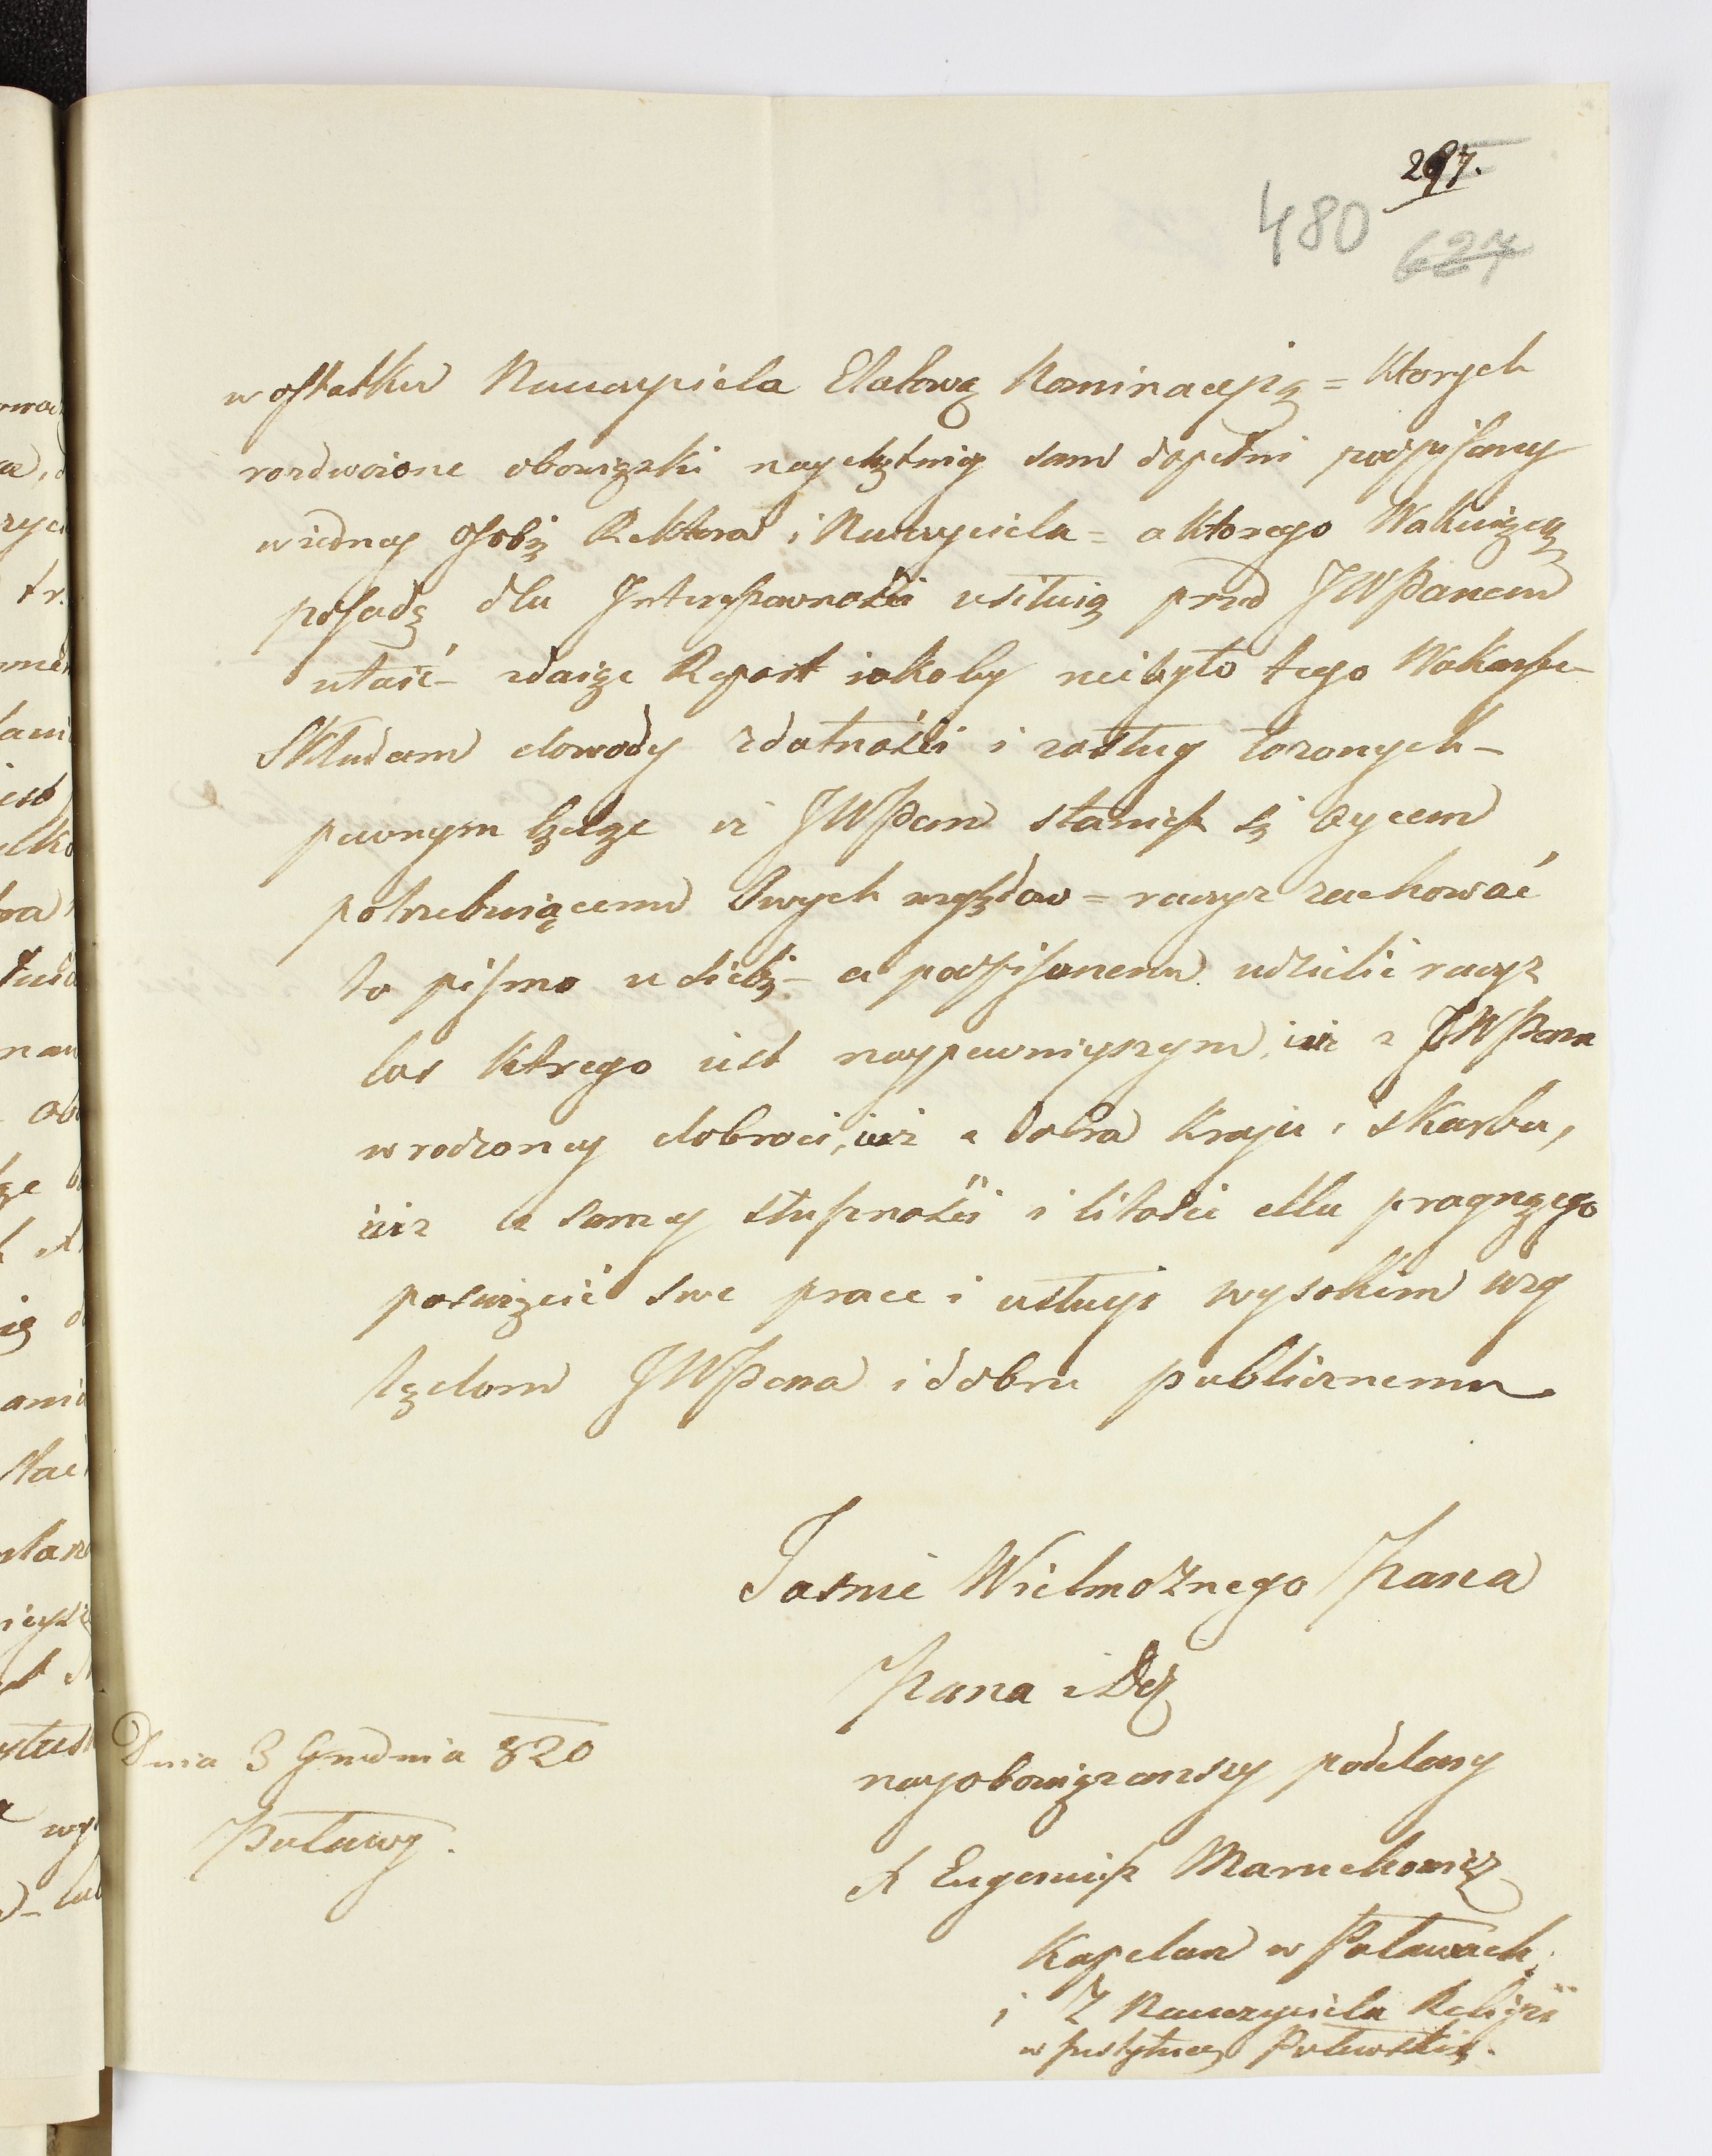 297.
480 627
w ostatku Nauczyciela Etatową Nominacyią = ktorych
rozdwoione obowiązki naychętniy sam dopełni podpisany
w iedney osobie Rektora i Nauczyciela = a ktorego Wakuiącą
posadę dla Interessowności usiłuią przed JWPanem
utaić – zdaiąc Raport iakoby niebyło tego Wakansu –
Składam dowody zdatności i zasług łożonych –
pewnym będąc iż JWPan staniesz się oycem
potrzebuiącemu Twych względow = raczysz zachować
to pismo u siebie – a podpisanemu udzielić raczysz
los ktrego iest naypewnieyszym, iuż z JWPana
wrodzoney dobroci, iuż z dobra Kraju i skarbu,
iuż z samey słuszności i litości dla pragnącego
poswięcić swe prace i usługi wysokim wzg
lędom JWPana i dobru publicznemu
Jaśnie Wielmożnego Pana
Pana i Dob
nayobowiązanszy podelany
Dnia 3 Grudnia 820
Puławy.
X Eugeniusz Maruchowicz
Kapelan w Puławach
i Z Nauczyciela Religii
w Instytucie Puławskim.